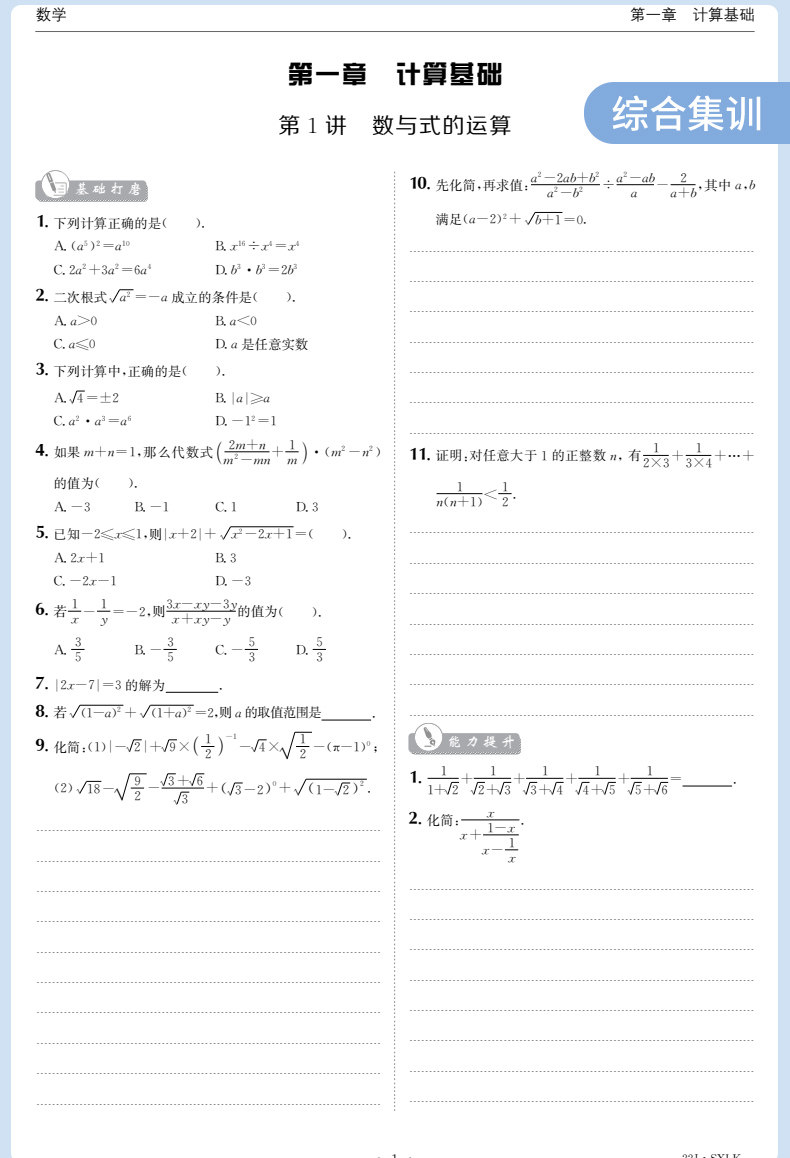 数学
第一章 计算基础
第一章 计算基础
第 1 讲 数与式的运算
综合集训
基础打磨
1. 下列计算正确的是( ).
A. (a⁵)²=a¹⁰ B. x¹⁶÷x⁴=x⁴
C. 2a²+3a²=6a⁴ D. b³·b³=2b³
2. 二次根式√(a²)=-a 成立的条件是( ).
A. a>0 B. a<0
C. a≤0 D. a 是任意实数
3. 下列计算中,正确的是( ).
A. √4=±2 B. |a|≥a
C. a²·a³=a⁶ D. -1²=1
4. 如果 m+n=1,那么代数式((2m+n)/(m²-mn)+1/m)·(m²-n²)
的值为( ).
A. -3 B. -1 C. 1 D. 3
5. 已知-2≤x≤1,则|x+2|+√(x²-2x+1)=( ).
A. 2x+1 B. 3
C. -2x-1 D. -3
6. 若1/x-1/y=-2,则(3x-xy-3y)/(x+xy-y)的值为( ).
A. 3/5 B. -3/5 C. -5/3 D. 5/3
7. |2x-7|=3 的解为______.
8. 若√((1-a)²)+√((1+a)²)=2,则 a 的取值范围是______.
9. 化简:(1)|-√2|+√9×(1/2)⁻¹-√4×√(1/2)-(π-1)⁰;
(2)√18-√(9/2)-(√3+√6)/√3+(√3-2)⁰+√((1-√2)²).
10. 先化简,再求值:(a²-2ab+b²)/(a²-b²)÷(a²-ab)/a-2/(a+b),其中 a,b
满足(a-2)²+√(b+1)=0.
11. 证明:对任意大于 1 的正整数 n, 有1/(2×3)+1/(3×4)+…+
1/(n(n+1))<1/2.
能力提升
1. 1/(1+√2)+1/(√2+√3)+1/(√3+√4)+1/(√4+√5)+1/(√5+√6)=______.
2. 化简:x/(x+(1-x)/(x-1/x)).